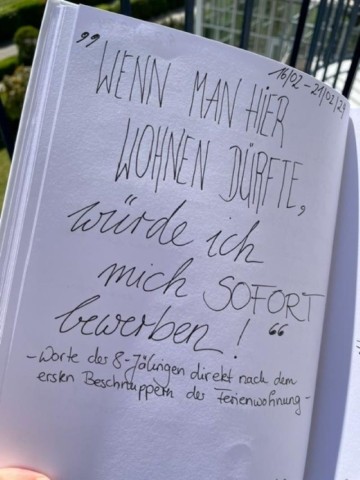 16/02 – 21/02/24
„WENN MAN HIER
WOHNEN DÜRFTE,
würde ich
mich SOFORT
bewerben!“
- Worte des 8-Jölingen direkt nach dem
ersten Beschnuppern der Ferienwohnung -